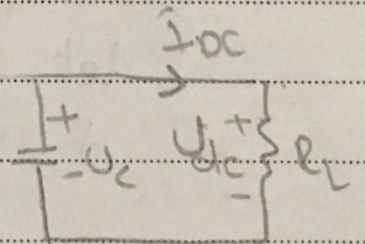 I DC
+ + 
- Uc Udc RL
-